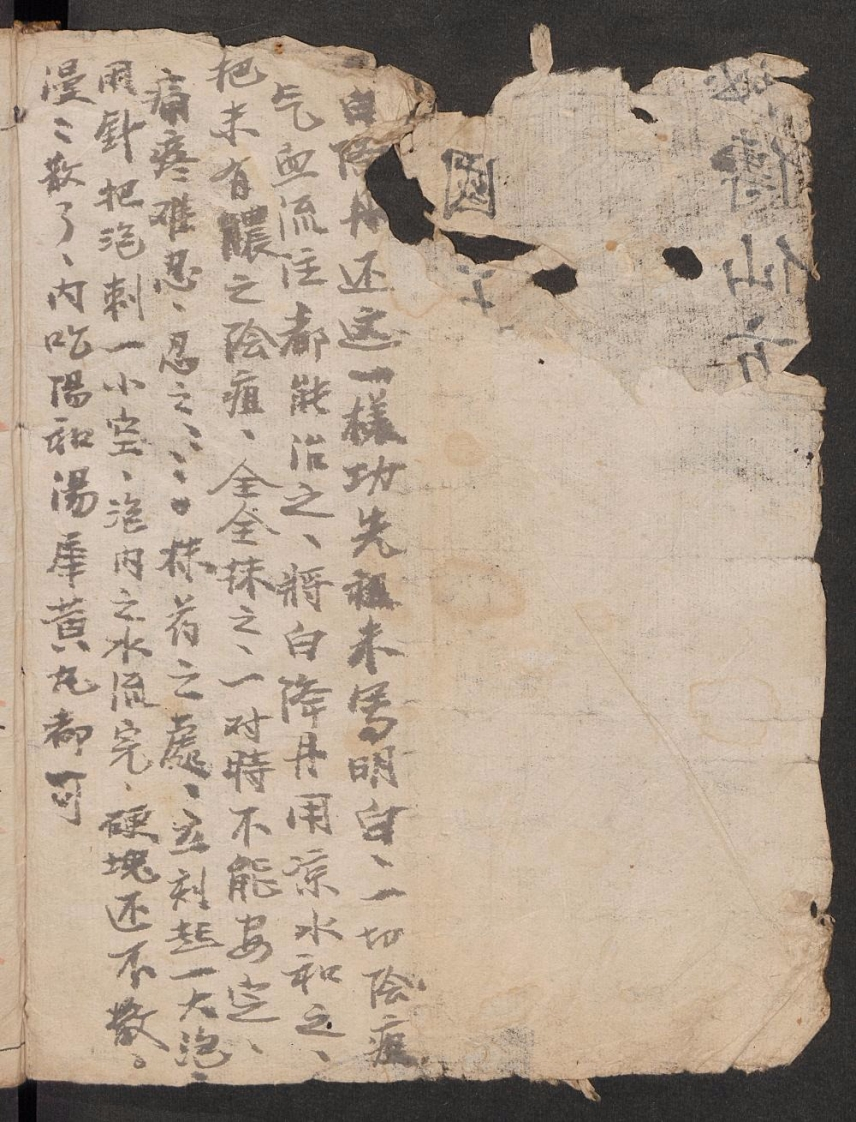 仙方
國
白降丹还这一樣功先祖未寫明白、一切陰疽
气血流注都能治之、將白降丹用凉水和之、
把未有膿之陰疽、全全抹之、一对時不能安定、
痛疼难忍、忍之、、、抹药之處、立刻起一大泡、
用針把泡刺一小空、泡内之水流完、硬塊还不散。
漫〻散了、内吃陽和湯犀黄丸都可